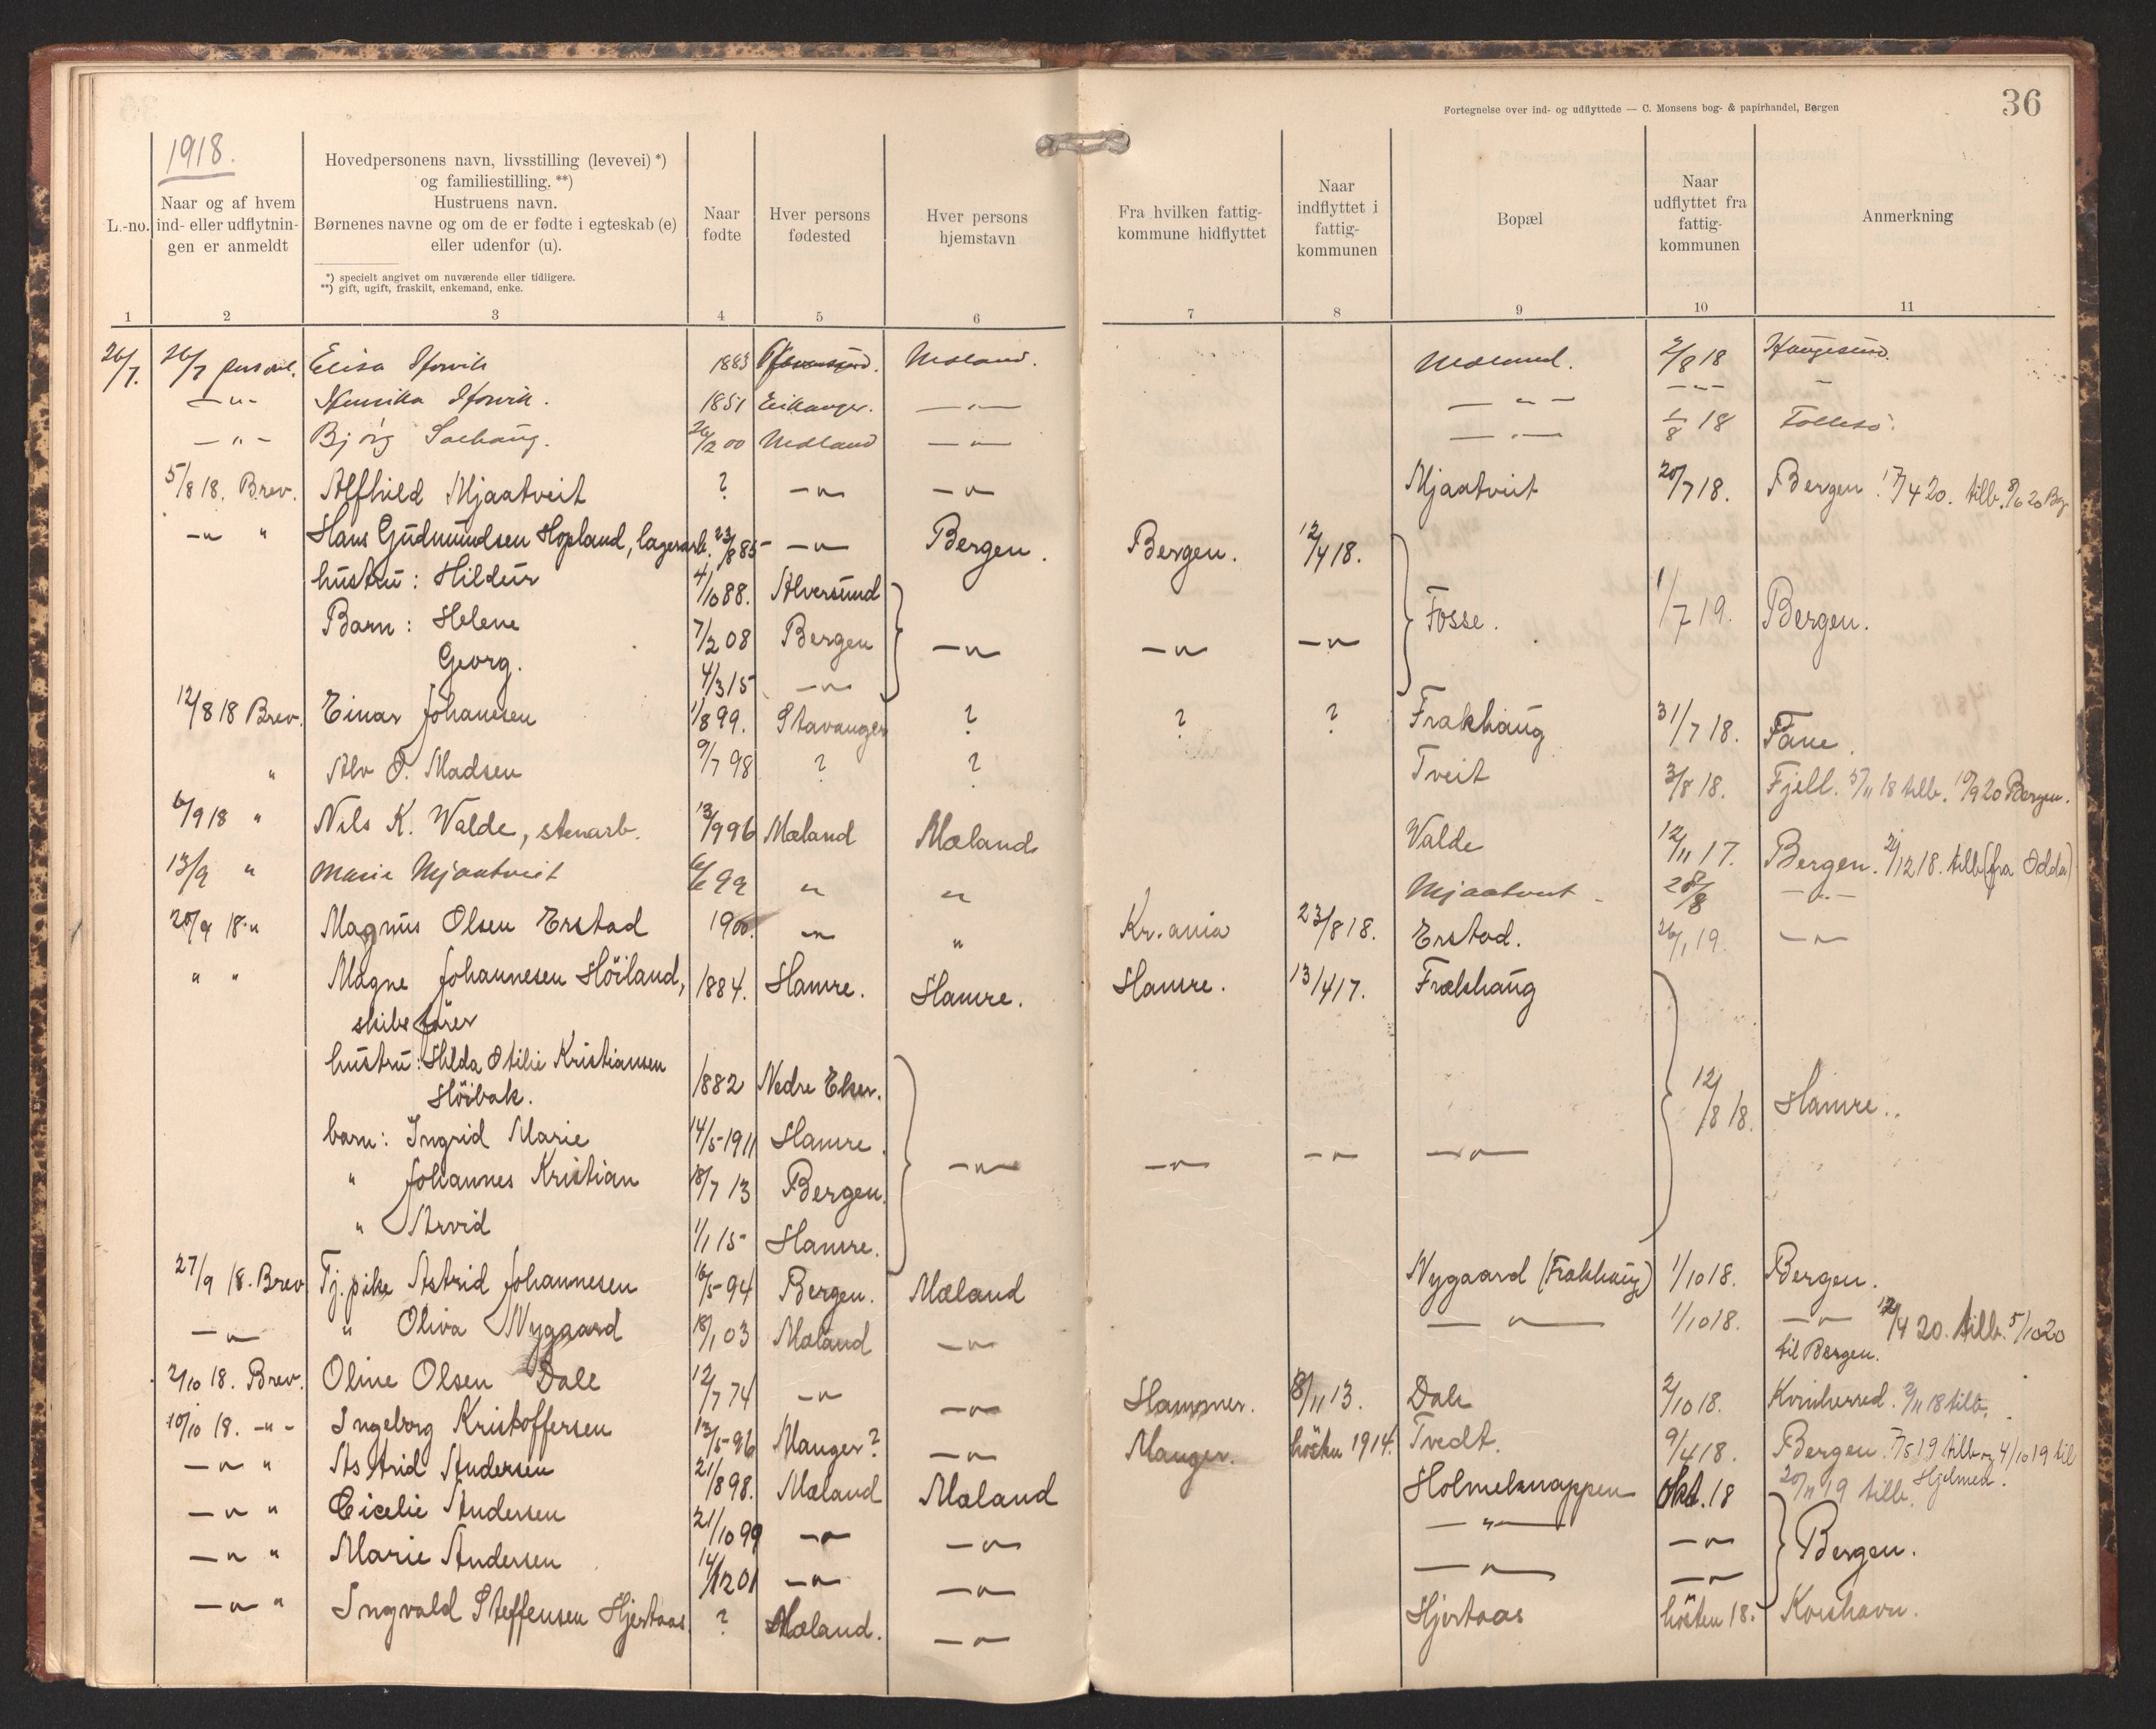 Fortegnelse over ind- og udflyttede — C. Monsens bog- & papirhandel, Bergen
36
1918.
L.-no.
Naar og af hvem
ind- eller udflytnin-
gen er anmeldt
Hovedpersonens navn, livsstilling (levevei) *)
og familiestilling. **)
Hustruens navn.
Børnenes navne og om de er fødte i egteskab (e)
eller udenfor (u).
*) specielt angivet om nuværende eller tidligere.
**) gift, ugift, fraskilt, enkemand, enke.
Naar
fødte
Hver persons
fødested
Hver persons
hjemstavn
Fra hvilken fattig-
kommune hidflyttet
Naar
indflyttet i
fattig-
kommunen
Bopæl
Naar
udflyttet fra
fattig-
kommunen
Anmerkning
1 2 3 4 5 6 7 8 9 10 11
26/7. 26/7 Elisa 1883 Mæland. Mæland. 2/8 18 Haugesund.
—"— 1851 Eikanger. —"— —"— —"— —"—
—"— Bjørg 00 Mæland —"— —"— 1/8 18
5/8 18. Brev. Alfhild Mjaatveit ? —"— —"— Mjaatveit 20/7 18. Bergen. 17/4 20. tilb.
—" " Hans Gudmundsen Hopland, lagerarb. 23/8 85 —"— Bergen. Bergen. 12/4 18.
hustru: Hildur 4/10 88. Alversund
Barn: Helene 7/2 08 Bergen —"— —"— —"— Fosse. 1/7 19. Bergen.
Georg. 4/3 15 —"—
12/8 18 Brev. Einar Johannesen 1/8 99. Stavanger ? ? ? Frakhaug 31/7 18. Fane.
" Alv O. Madsen 9/7 98 ? ? Tveit 3/8 18. Fjell. 5/11 18 tilb. 10/9 20 Bergen.
6/9 18 " Nils K. Valde, stenarb. 13/9 96 Mæland Mæland Valde 12/11 17. Bergen. 12 18. tilb (fra Odda)
13/9 " Marie Mjaatveit 6/6 99 " " Mjaatveit 28/8 —"—
20/9 18 " Magnus Olsen Erstad 1900. —"— " Kr.ania 23/8 18. Erstad. 26/1 19. —"—
" " Magne Johannesen Höiland, 1884. Hamre. Hamre. Hamre. 13/4 17. Frækhaug
skibsfører
hustru: Hilda Otilie Kristiansen
Höibak. 1882 Nedre Eker. 12/8 18. Hamre.
barn: Ingrid Marie 14/5 1911 Hamre. —"— —"— —"— —"—
" Johannes Kristian 18/7 13 Bergen.
" Arvid 1/1 15 Hamre.
27/9 18. Brev Tj.pike Astrid Johannesen 16/5 94 Bergen. Mæland Nygaard (Frakhaug) 1/10 18. Bergen.
—"— " Oliva Nygaard 18/1 03 Mæland —"— —"— 1/10 18. —"— 12/4 20. tilb. 5/10 20
til Bergen.
2/10 18. Brev. Oline Olsen Dale 12/7 74 —"— —"— Hammer. 8/11 13. Dale 2/10 18. Kvinherred. 2/11 18 tilb.
10/10 18. —"— Ingeborg Kristoffersen 13/5 96 Manger? —"— Manger. hösten 1914. Tvedt. 9/4 18. Bergen. 7/5 19 tilb og 4/10 19 til
Hjelmen.
—" " Astrid Andersen 21/8 98. Mæland Mæland Holmeknappen Okt. 18 20/11 19 tilb.
—" " Cicelie Andersen 21/10 99 —"— —"— —"— —"— Bergen.
—" " Marie Andersen 14/12 01 —"— —"— —"— —"—
—" " Ingvald Steffensen Hjertaas ? Mæland. —"— Hjertaas hösten 18. Korshavn.